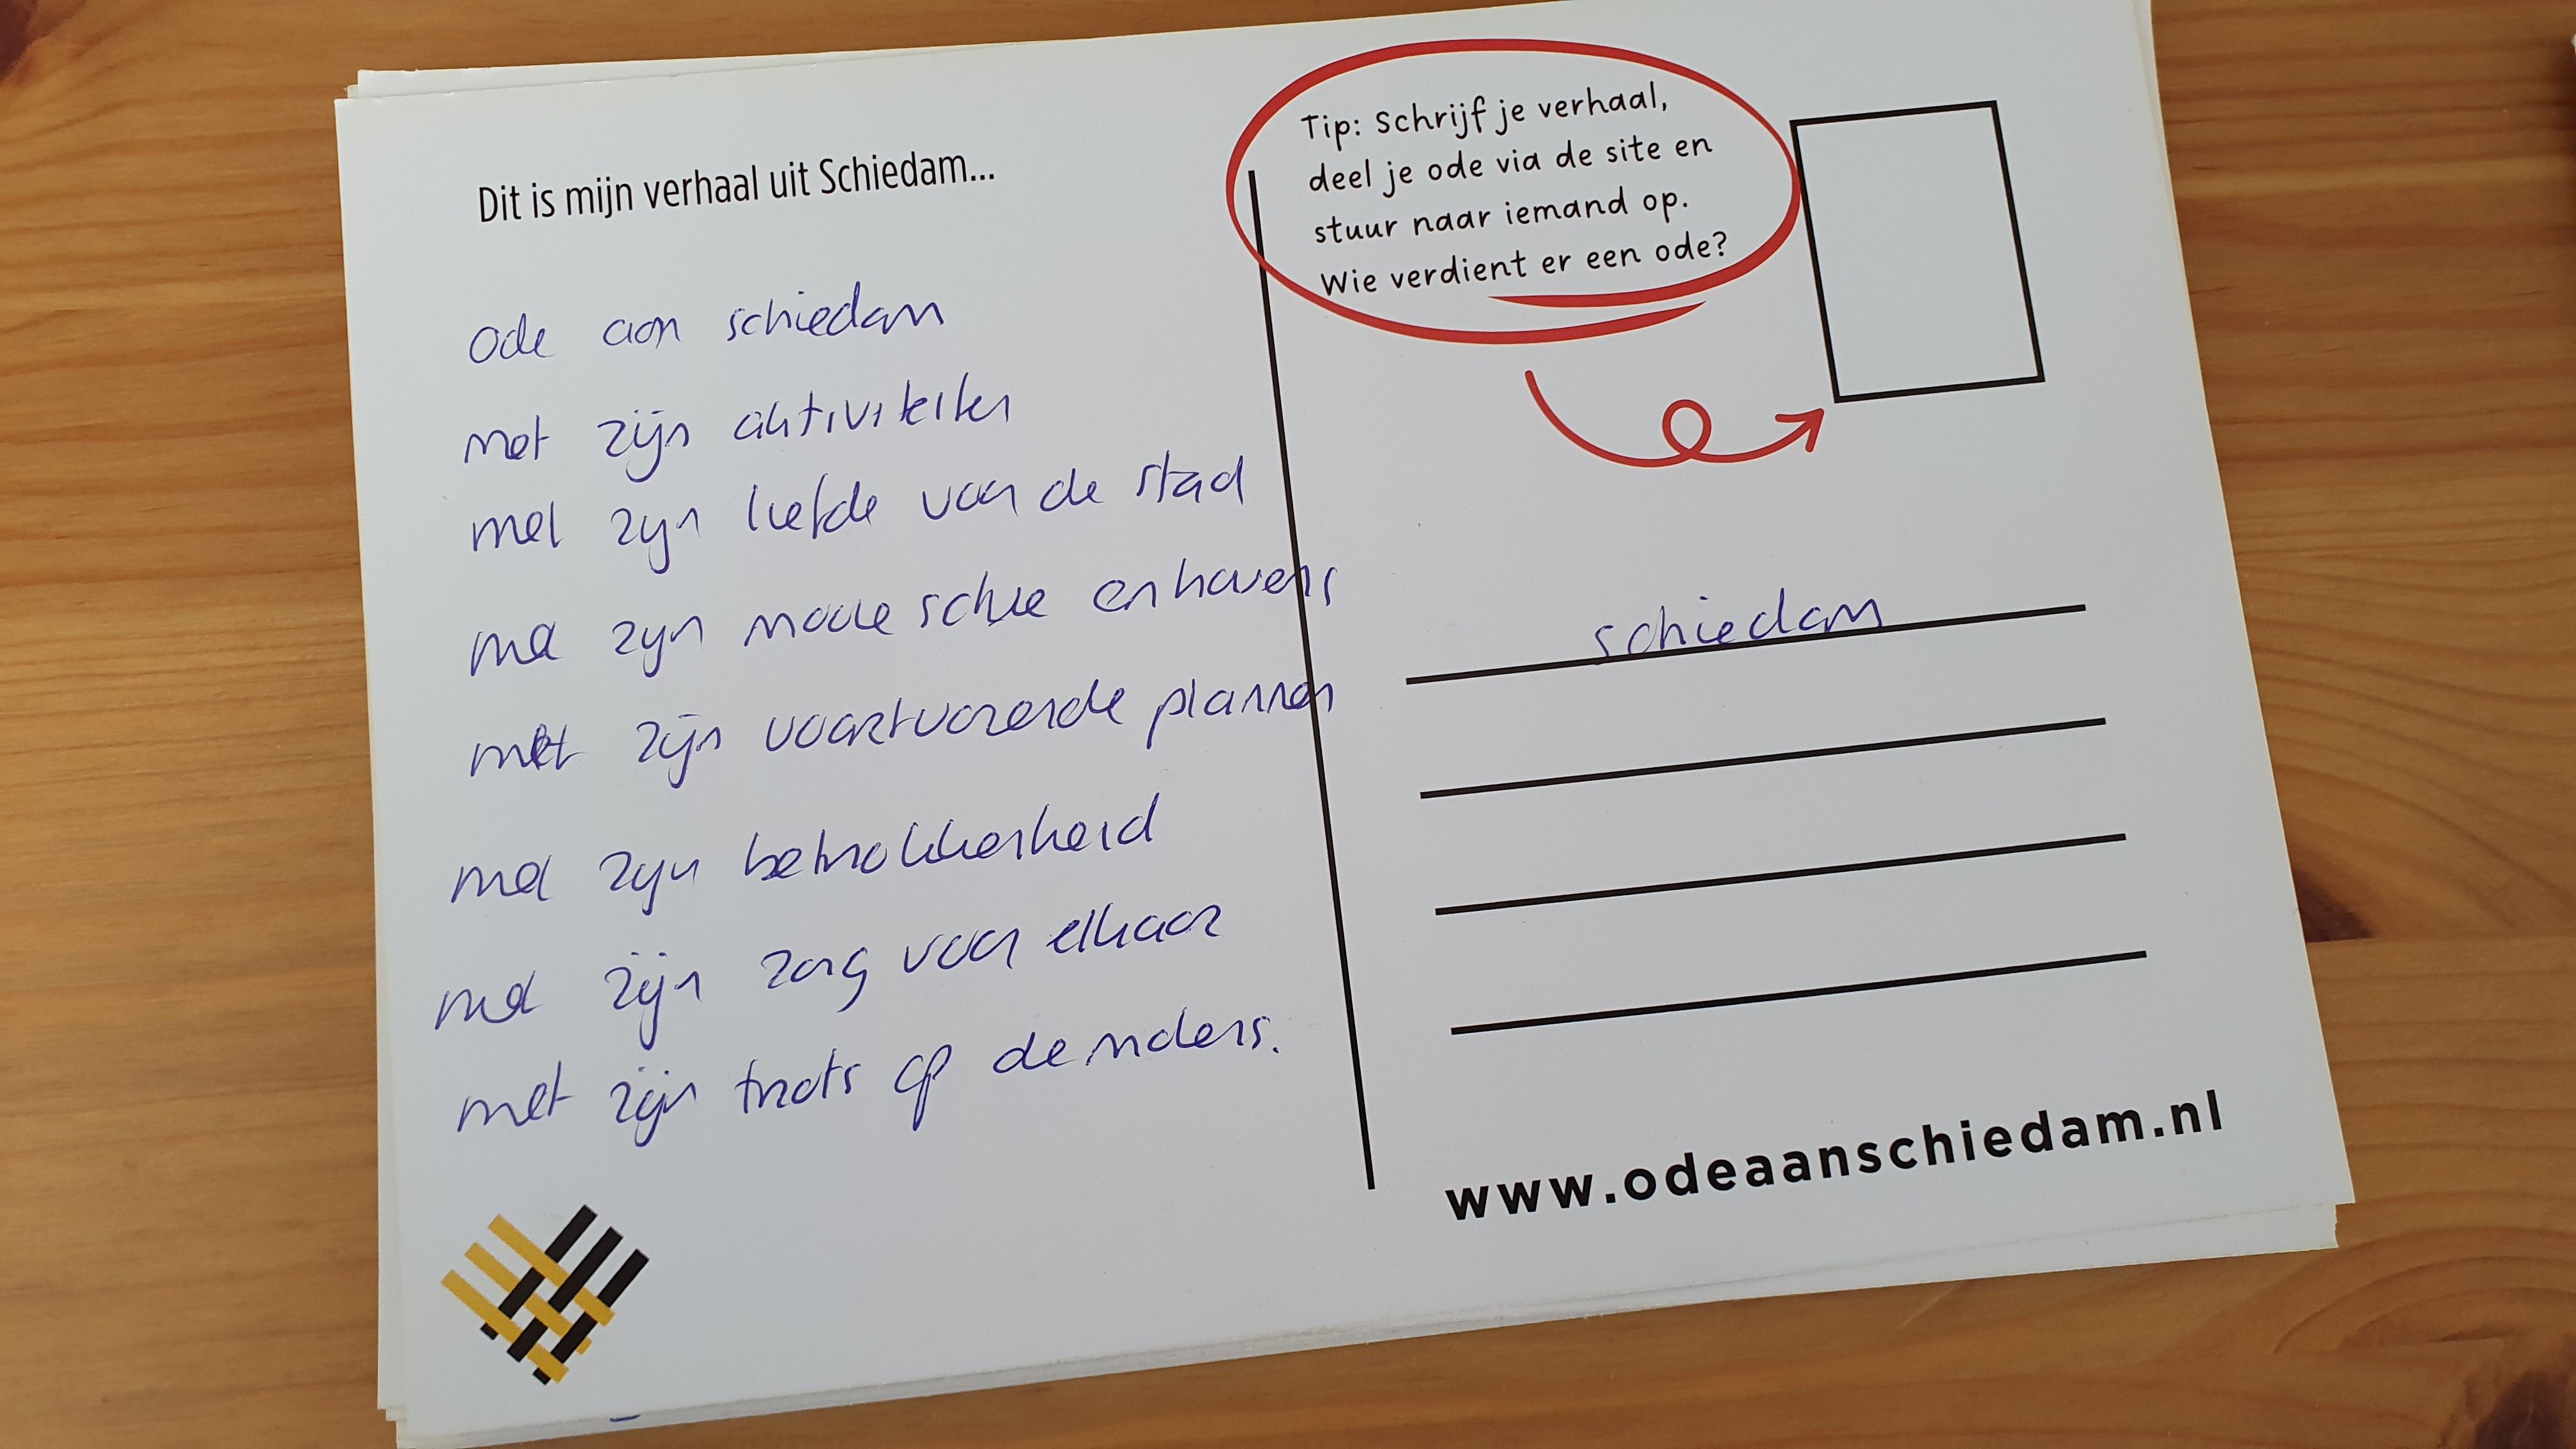 Dit is mijn verhaal uit Schiedam...
ode aan schiedam
met zijn aktiviteiten
met zijn liefde van de stad
met zijn mooie schie en havens
met zijn voortvarende plannen
met zijn betrokkenheid
met zijn zorg voor elkaar
met zijn trots op de molens.
Tip: Schrijf je verhaal,
deel je ode via de site en
stuur naar iemand op.
Wie verdient er een ode?
schiedam
www.odeaanschiedam.nl